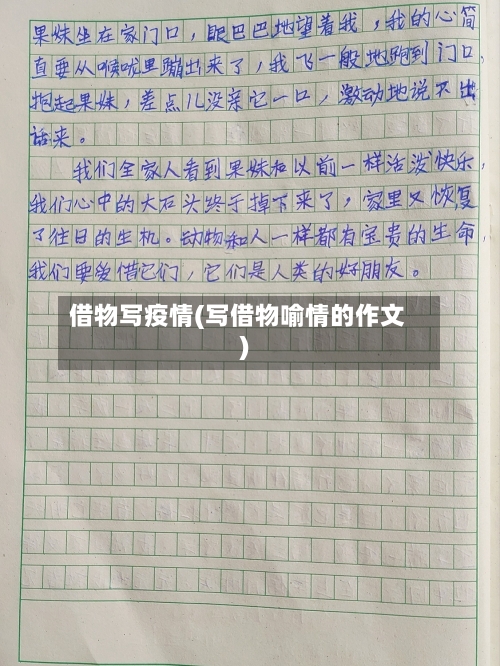 果妹坐在家门口，眼巴巴地望着我，我的心简
直要从喉咙里蹦出来了，我飞一般地跑到门口，
抱起果妹，差点儿没亲它一口，激动地说不出
话来。
我们全家人看到果妹和以前一样活泼快乐，
我们心中的大石头终于掉下来了，家里又恢复
了往日的生机。动物和人一样都有宝贵的生命，
我们要爱惜它们，它们是人类的好朋友。
借物写疫情(写借物喻情的作文
)